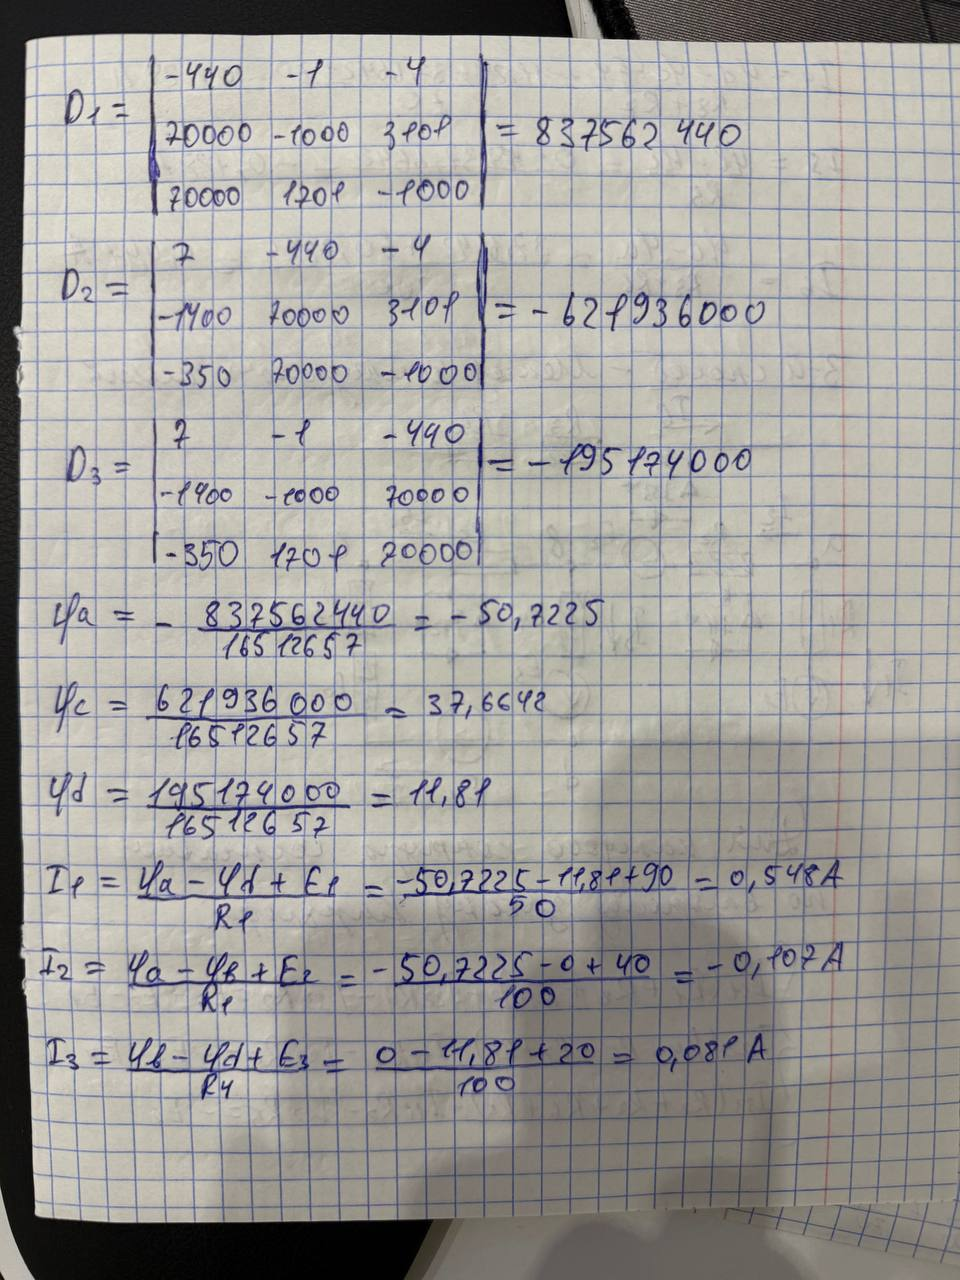 D1 = | -440 -1 -4 |
| 70000 -1000 3101 | = 837562440
| 70000 1701 -1000 |
D2 = | 7 -440 -4 |
| -1400 70000 3101 | = -621936000
| -350 70000 -1000 |
D3 = | 7 -1 -440 |
| -1400 -1000 70000 | = -195174000
| -350 1701 70000 |
φa = - 837562440 / 16512657 = -50,7225
φc = 621936000 / 16512657 = 37,6642
φd = 195174000 / 16512657 = 11,81
I1 = φa - φd + E1 / R1 = -50,7225 - 11,81 + 90 / 50 = 0,548 A
I2 = φa - φв + E2 / R1 = -50,7225 - 0 + 40 / 100 = -0,107 A
I3 = φв - φd + E3 / R4 = 0 - 11,81 + 20 / 100 = 0,081 A